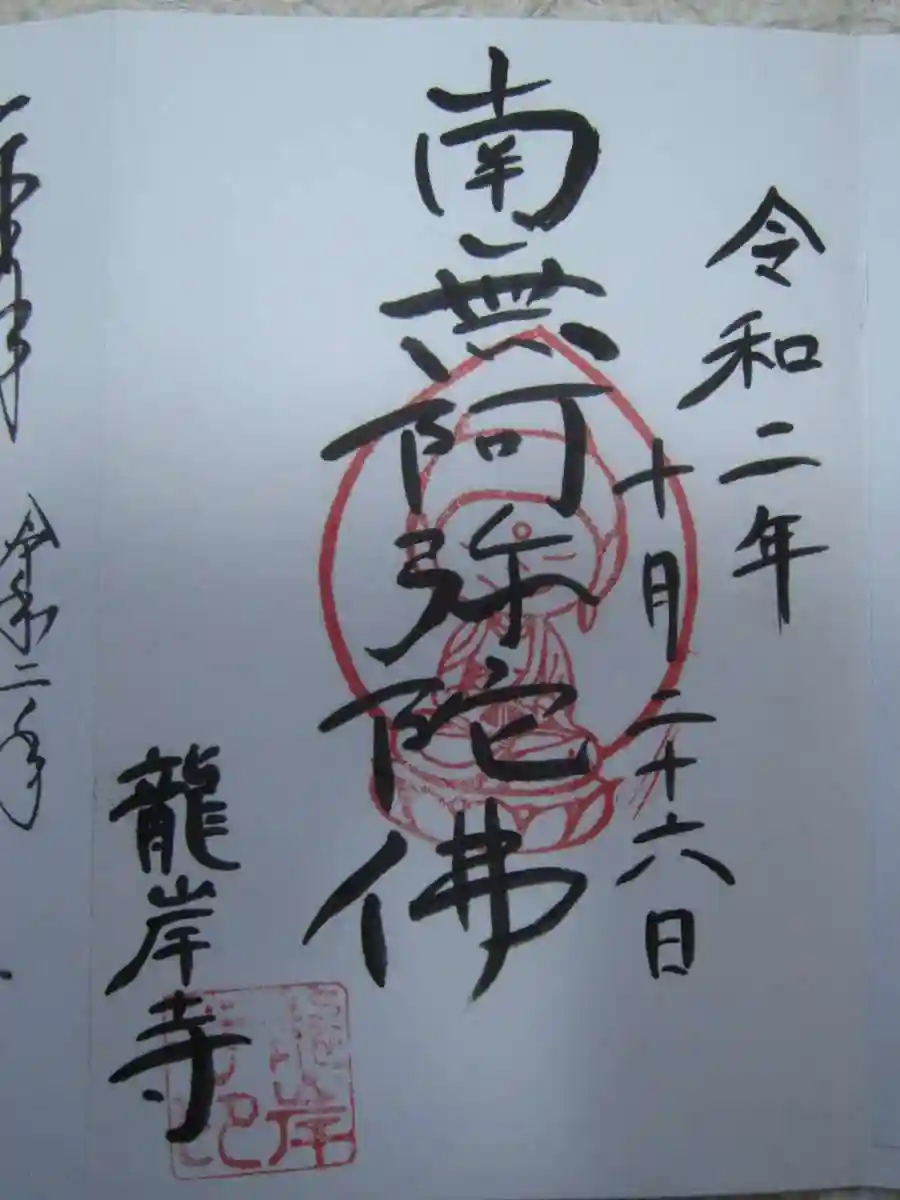 令和二年
十月二十六日
南無阿弥陀佛
龍岸寺
令和二年